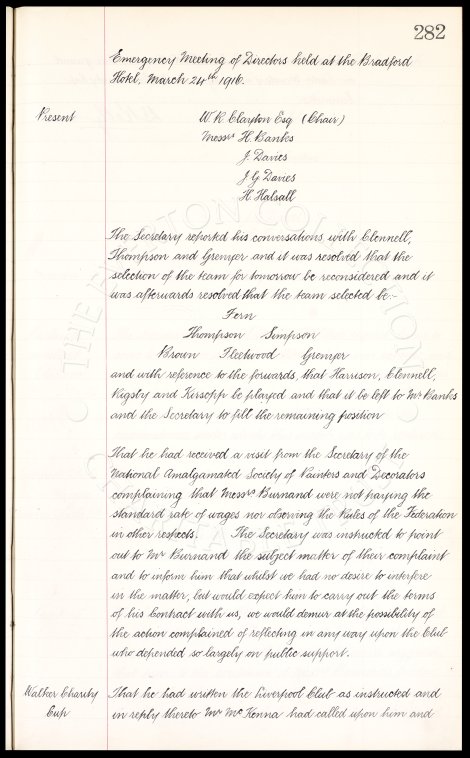 282
Emergency Meeting of Directors held at the Bradford
Hotel, March 24th 1916.
Present
W R Clayton Esq (Chair)
Messrs H. Banks
J. Davies
J G Davies
H Halsall
The Secretary reported his conversations with Clennell,
Thompson and Grenyer and it was resolved that the
selection of the team for tomorrow be reconsidered and it
was afterwards resolved that the team selected be:-
Fern
Thompson Simpson
Brown Fleetwood Grenyer
and with reference to the forwards, that Harrison, Clennell,
Rigsby and Kirsopp be played and that it be left to Mr Banks
and the Secretary to fill the remaining position
That he had received a visit from the Secretary of the
National Amalgamated Society of Painters and Decorators
complaining that Messrs Burnand were not paying the
standard rate of wages nor observing the Rules of the Federation
in other respects. The Secretary was instructed to point
out to Mr Burnand the subject matter of their complaint
and to inform him that whilst we had no desire to interfere
in the matter, but would expect him to carry out the terms
of his Contract with us, we would demur at the possibility of
the action complained of reflecting in any way upon the Club
who depended so largely on public support.
Walker Charity
Cup
That he had written the Liverpool Club as instructed and
in reply thereto Mr McKenna had called upon him and
THE EVERTON COLLECTION